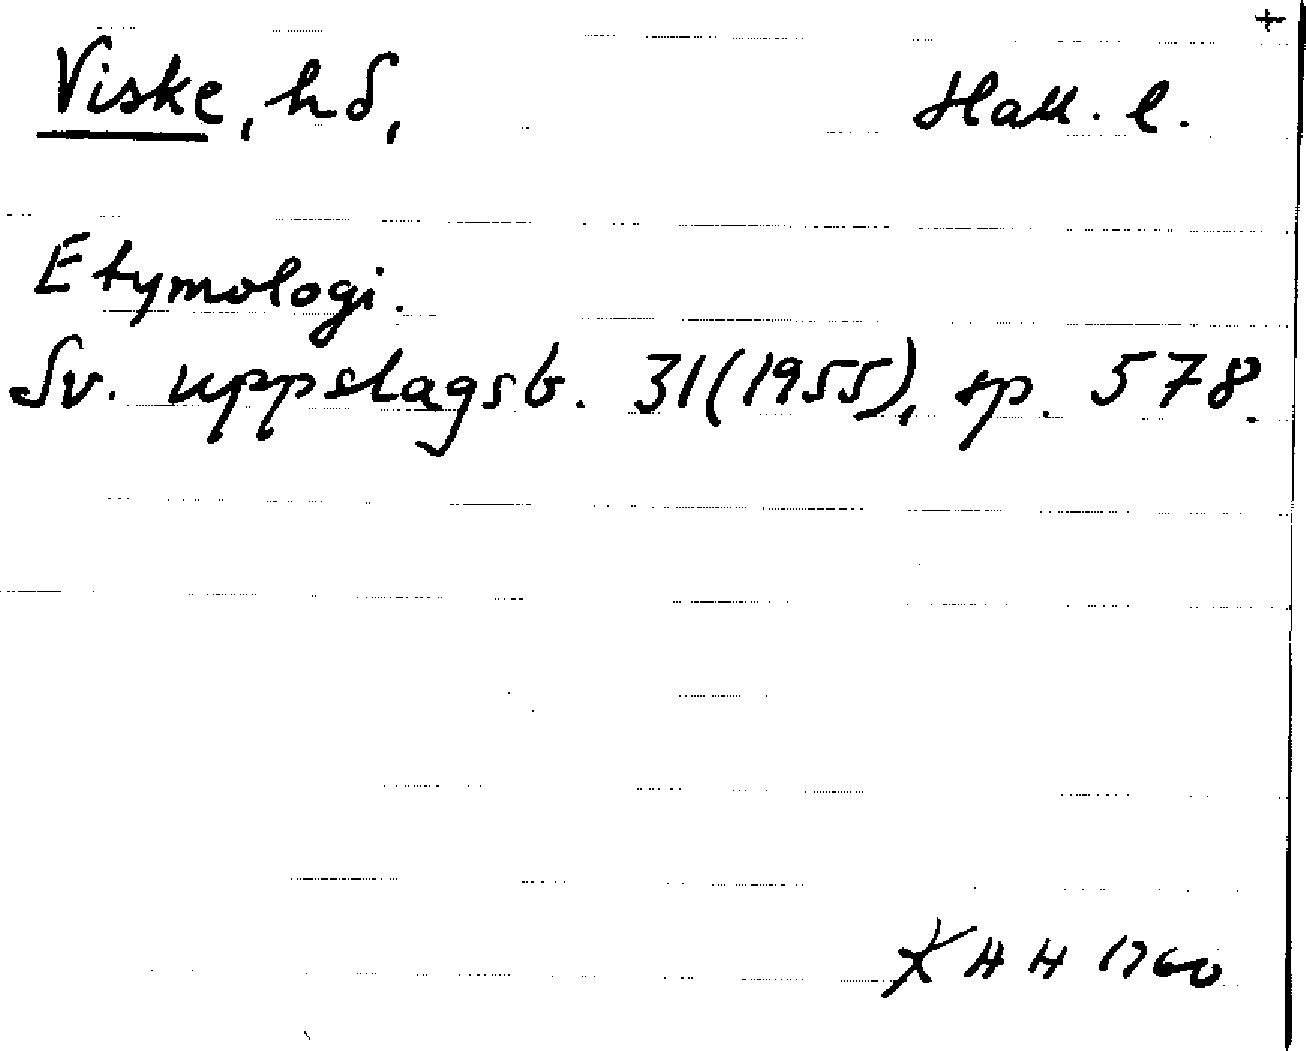 +
Viske, hd, Hall. l.
Etymologi.
Sv. uppslagsb. 31 (1955), sp. 578.
HH 1960